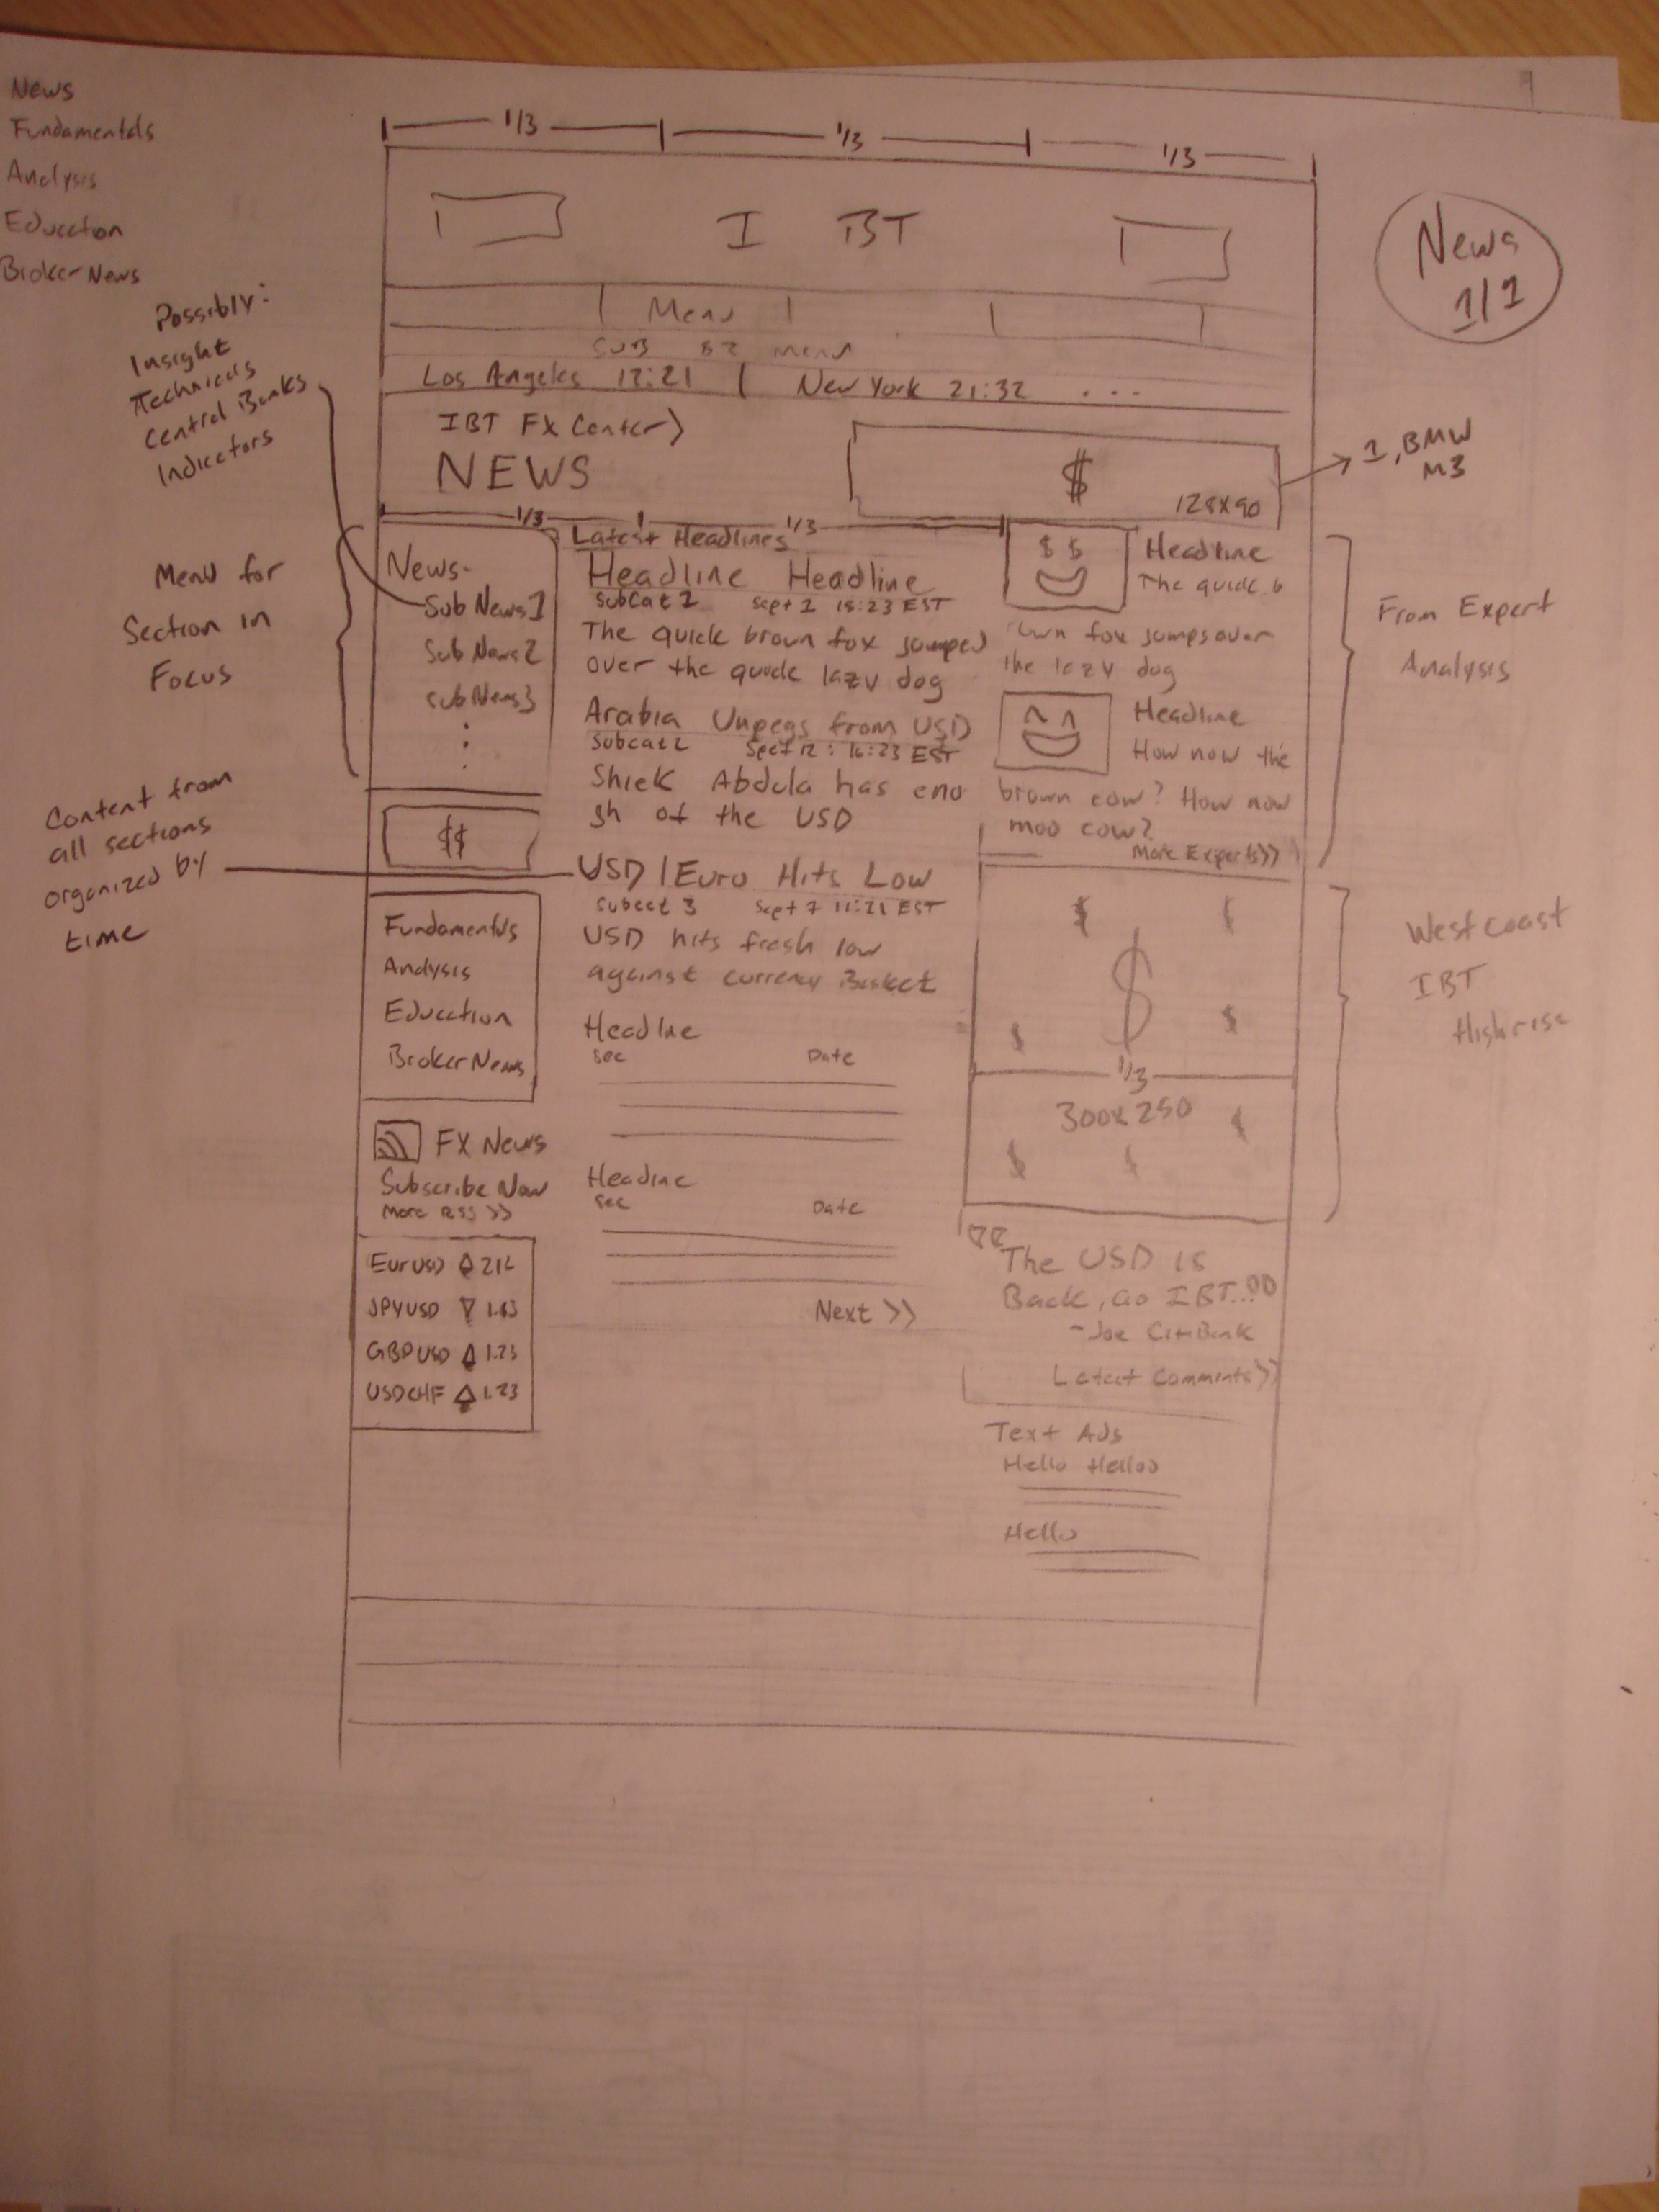 News
Fundamentals
Analysis
Education
Broker News
Possibly:
Insight
Technicals
Central Banks
Indicators
Menu for
Section in
Focus
Content from
all sections
organized by
time
1/3 1/3 1/3
I BT
Menu
SUB menu
Los Angeles 12:21 | New York 21:32 ...
IBT FX Center >
NEWS
$
728x90
1/3 1/3
News
Sub News 1
Sub News 2
Sub News 3
$$
Fundamentals
Analysis
Education
Broker News
FX News
Subscribe Now
More RSS >>
EURUSD 212
JPYUSD 1.63
GBPUSD 1.23
USDCHF 1.23
Latest Headlines
Headline Headline
subcat 1 Sept 2 15:23 EST
The quick brown fox jumped
over the quick lazy dog
Arabia Unpegs from USD
subcat 2 Sept 12: 16:23 EST
Shiek Abdula has eno
gh of the USD
USD/Euro Hits Low
subcat 3 Sept 7 11:21 EST
USD hits fresh low
against currency Basket
Headlne
sec Date
Headlne
sec Date
Next >>
$ $
Headline
The quick b
own fox jumps over
the lazy dog
Headline
How now the
brown cow? How now
moo cow?
More Experts >>
$ $
$
$ $
1/3
300x250
$
$ $
The USD is
Back, Go IBT...
- Joe CitiBank
Latest Comments >>
Text Ads
Hello Helloo
Hello
News
1/1
1, BMW
M3
From Expert
Analysis
West coast
IBT
Highrise